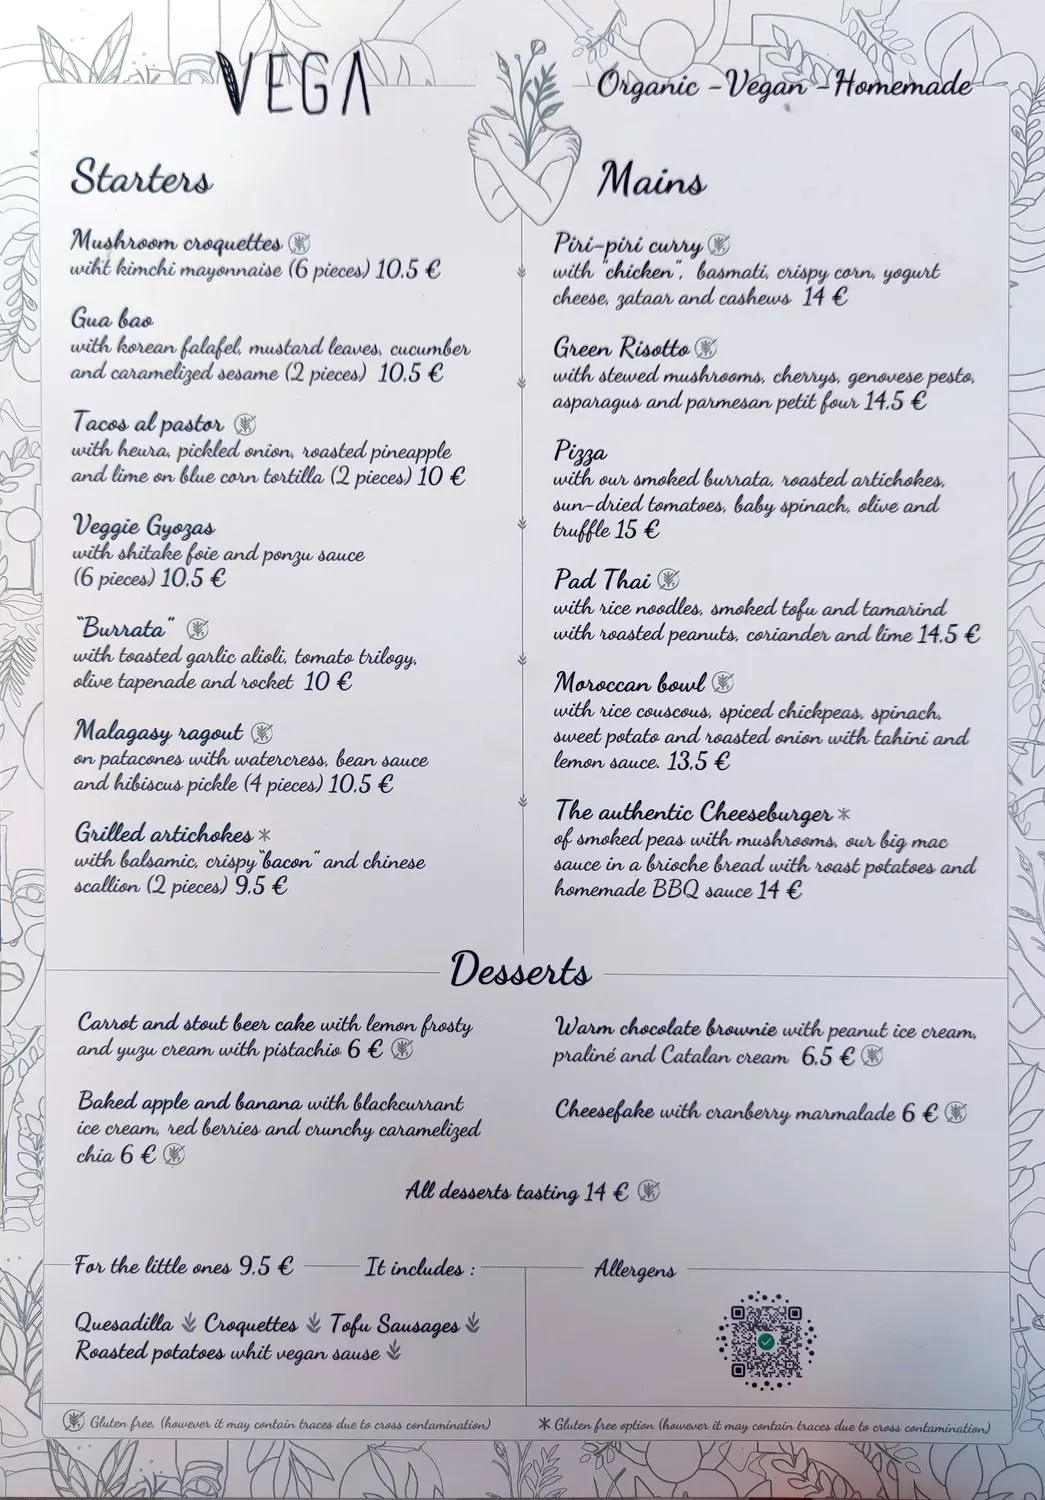 VEGA
Organic -Vegan -Homemade
Starters
Mushroom croquettes
wiht kimchi mayonnaise (6 pieces) 10.5 €
Gua bao
with korean falafel, mustard leaves, cucumber
and caramelized sesame (2 pieces) 10.5 €
Tacos al pastor
with heura, pickled onion, roasted pineapple
and lime on blue corn tortilla (2 pieces) 10 €
Veggie Gyozas
with shitake foie and ponzu sauce
(6 pieces) 10.5 €
"Burrata"
with toasted garlic alioli, tomato trilogy,
olive tapenade and rocket 10 €
Malagasy ragout
on patacones with watercress, bean sauce
and hibiscus pickle (4 pieces) 10.5 €
Grilled artichokes *
with balsamic, crispy "bacon" and chinese
scallion (2 pieces) 9.5 €
Mains
Piri-piri curry
with "chicken", basmati, crispy corn, yogurt
cheese, zataar and cashews 14 €
Green Risotto
with stewed mushrooms, cherrys, genovese pesto,
asparagus and parmesan petit four 14.5 €
Pizza
with our smoked burrata, roasted artichokes,
sun-dried tomatoes, baby spinach, olive and
truffle 15 €
Pad Thai
with rice noodles, smoked tofu and tamarind
with roasted peanuts, coriander and lime 14.5 €
Moroccan bowl
with rice couscous, spiced chickpeas, spinach,
sweet potato and roasted onion with tahini and
lemon sauce. 13.5 €
The authentic Cheeseburger *
of smoked peas with mushrooms, our big mac
sauce in a brioche bread with roast potatoes and
homemade BBQ sauce 14 €
Desserts
Carrot and stout beer cake with lemon frosty
and yuzu cream with pistachio 6 €
Baked apple and banana with blackcurrant
ice cream, red berries and crunchy caramelized
chia 6 €
Warm chocolate brownie with peanut ice cream,
praliné and Catalan cream 6.5 €
Cheesefake with cranberry marmalade 6 €
All desserts tasting 14 €
For the little ones 9.5 € It includes :
Quesadilla Croquettes Tofu Sausages
Roasted potatoes whit vegan sause
Allergens
Gluten free. (however it may contain traces due to cross contamination)
* Gluten free option (however it may contain traces due to cross contamination)